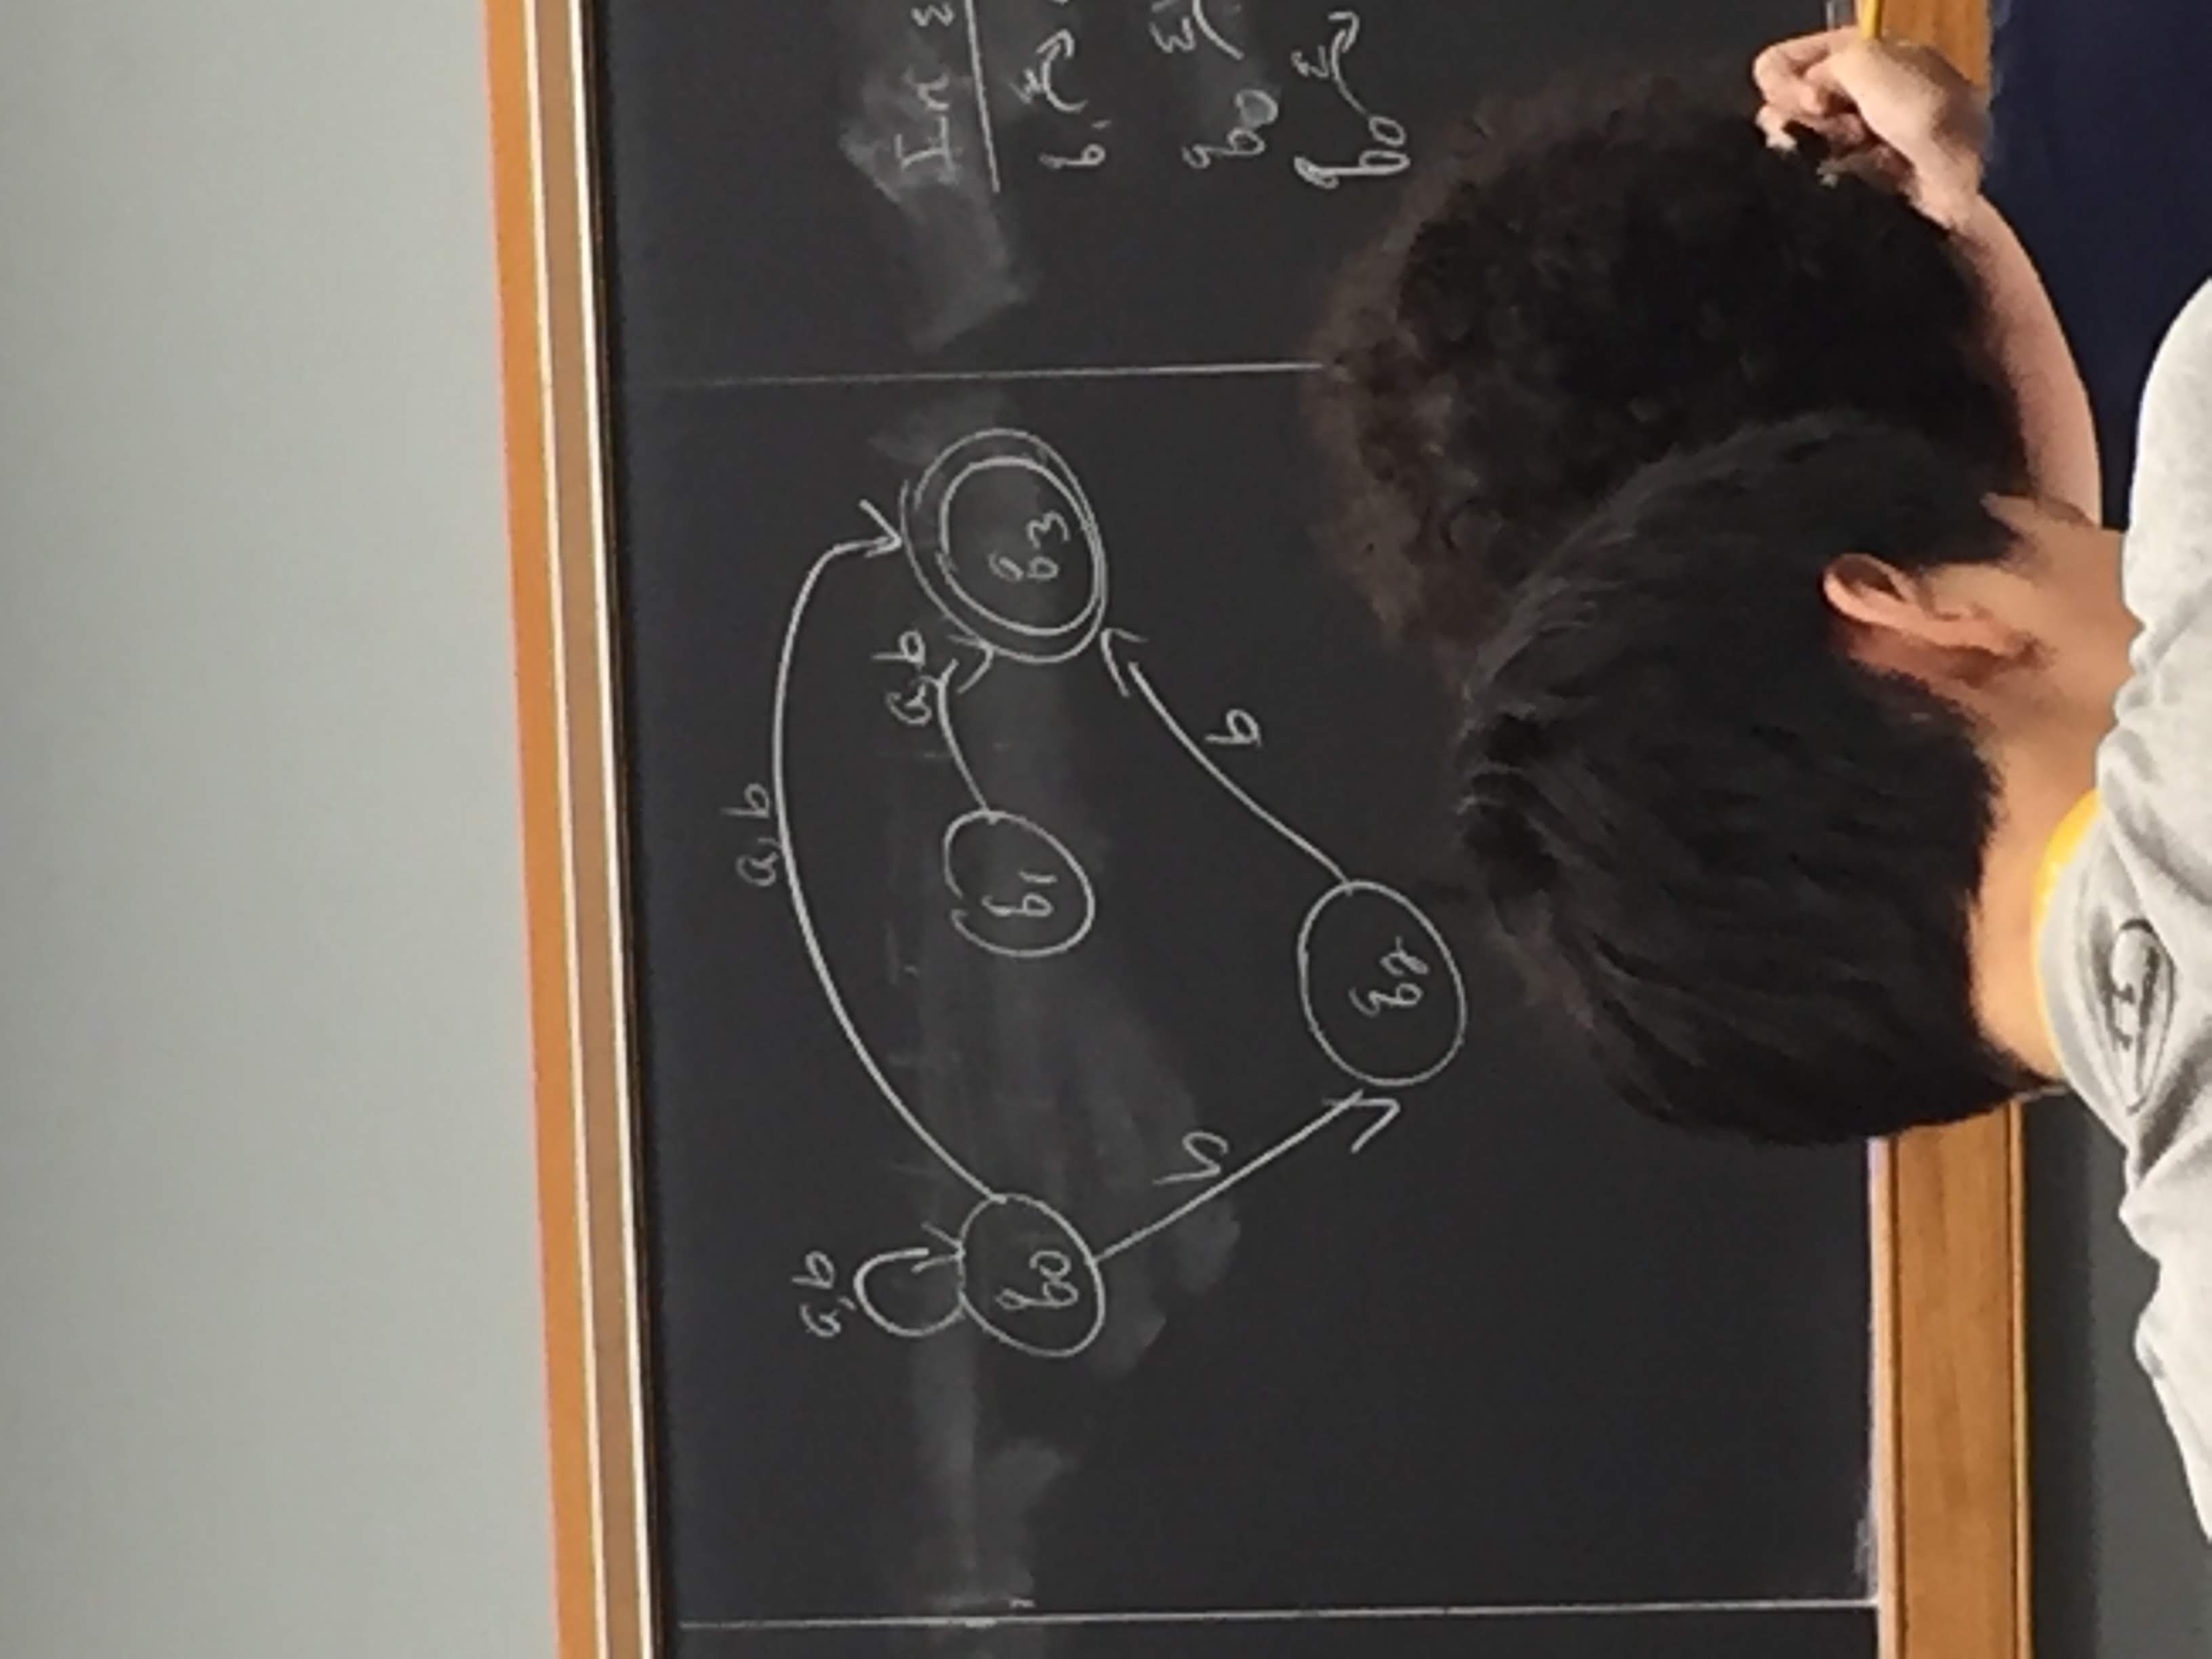 a, b
a, b
a, b
q0
q1
q3
b
b
q2
In ε
q1 ε
q0 ε
q0 ε